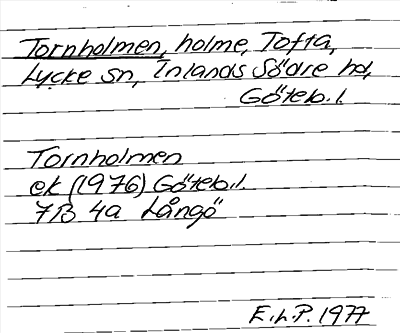 Tornholmen, holme, Tofta,
Lycke sn, Inlands Södre hd,
Göteb. l.
Tornholmen
ek (1976) Göteb. l.
7B 4a Långö
E.L.P. 1977